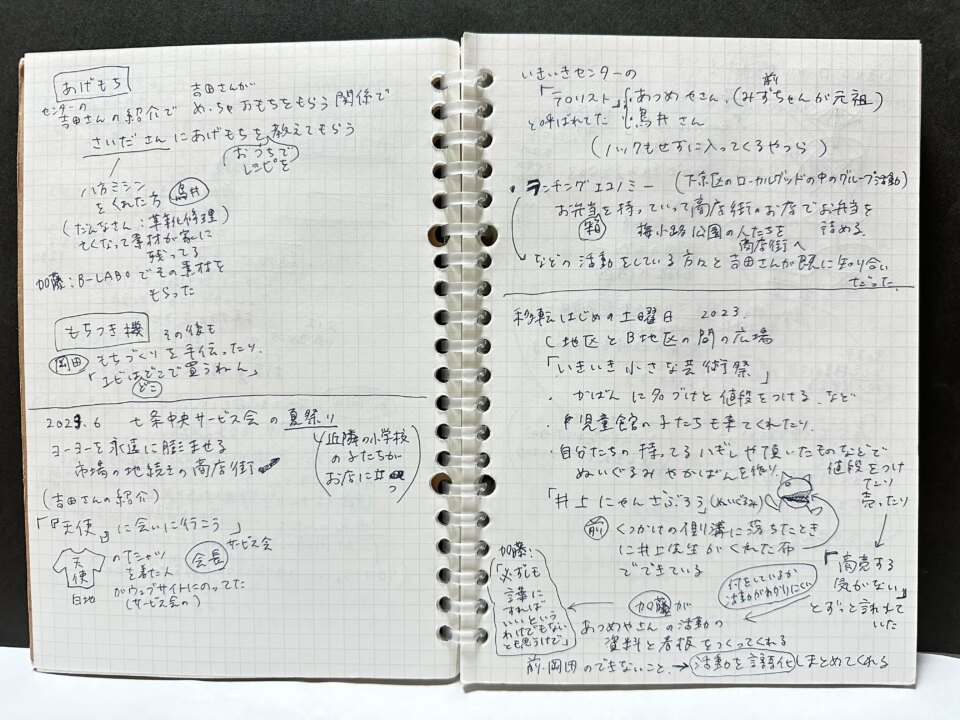 あげもち
吉田さんが
センターの
吉田さんの紹介で めっちゃおもちをもらう関係で
さいださんにあげもちを教えてもらう
おうちで
レシピを
ハカミシン
をくれた方 鳥井
(だんなさん:革靴修理)
亡くなって素材が家に
残ってる
加藤:B-LABOでその素材を
もらった
もちつき機 その後も
岡田 もちづくりを手伝ったり、
「エビはどこで買うねん」
どこ
2023.6 七条中央サービス会の夏祭り
ヨーヨーを永遠に膨ませる
市場の地続きの商店街
(近隣の小学校
の子たちが
お店に立つ)
(吉田さんの紹介)
「『天使』に会いに行こう」
天使
白地
のTシャツ
を着た人 会長 サービス会
がウェブサイトにのってた
(サービス会の)
いきいきセンターの
「テロリスト」 あつめやさん、(みずちゃんが元祖)
前
と呼ばれてた 鳥井さん
(ノックもせずに入ってくるやつら)
・ランチングエコノミー (下京区のローカルグッドの中のグループ活動)
お弁当を持っていって商店街のお店でお弁当を
箱 詰める。
梅小路公園の人たちを
商店街へ
などの活動をしている方々と吉田さんが既に知り合い
だった
移転はじめの土曜日 2023.
C地区とB地区の間の広場
「いきいき小さな芸術祭」
・かばんに名づけと値段をつける、など
・児童館の子たちも来てくれたり、
・自分たちの持ってるハギレや頂いたものなどで
ぬいぐるみやかばんを作り
値段をつけ
たり
売ったり
「井上にゃんさぶろう」(ぬいぐるみ)
前 くつかけの側溝に落ちたとき
に井上先生がくれた布
でできている
「商売する
気がない」
とずっと言われて
いた
何をしているか
活動がわかりにくい
加藤が
あつめやさんの活動の
資料と看板をつくってくれる
加藤:
「必ずしも
言葉に
すれば
いいという
わけでもない
とも思うけど」
前・岡田のできないこと → 活動を言語化しまとめてくれる